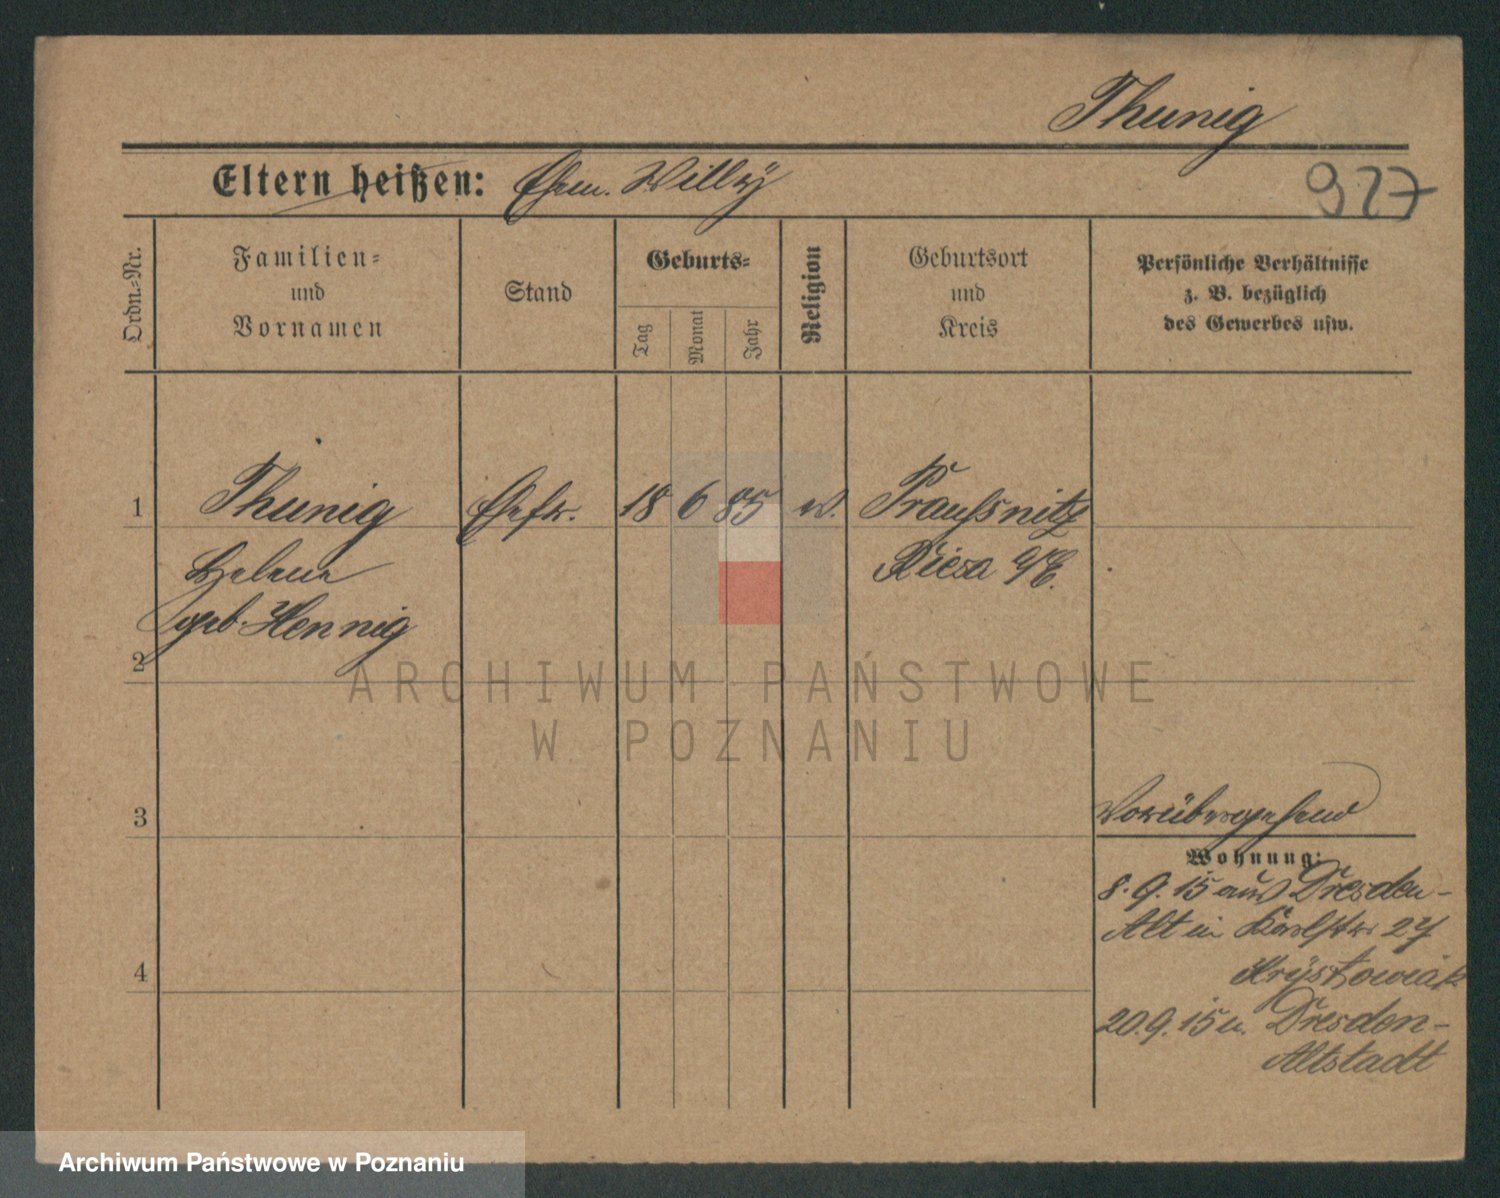 Thunig
927
Eltern heißen: Ehem. Willy
Ordn.=Nr.
Familien=
und
Vornamen
Stand
Geburts=
Tag
Monat
Jahr
Religion
Geburtsort
und
Kreis
Persönliche Verhältnisse
z. B. bezüglich
des Gewerbes usw.
1 Thunig Ehefr. 18 6 85 ev. Praußnitz
Helene Riesa a/E.
geb. Hennig
2
ARCHIWUM PAŃSTWOWE
W POZNANIU
3
Vorübergehend
Wohnung:
8.9.15 aus Dresden-
Alt in Karlstr. 27
4
20.9.15 n. Dresden-
Altstadt
Archiwum Państwowe w Poznaniu